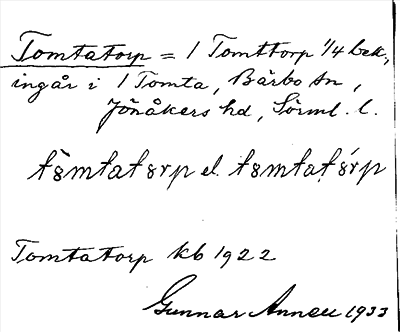 Tomtatorp = 1 Tomttorp 1/4 bek.,
ingår i 1 Tomta, Bärbo sn,
Jönåkers hd, Sörml. l.
el.
Tomtatorp kb 1922
Gunnar 1933